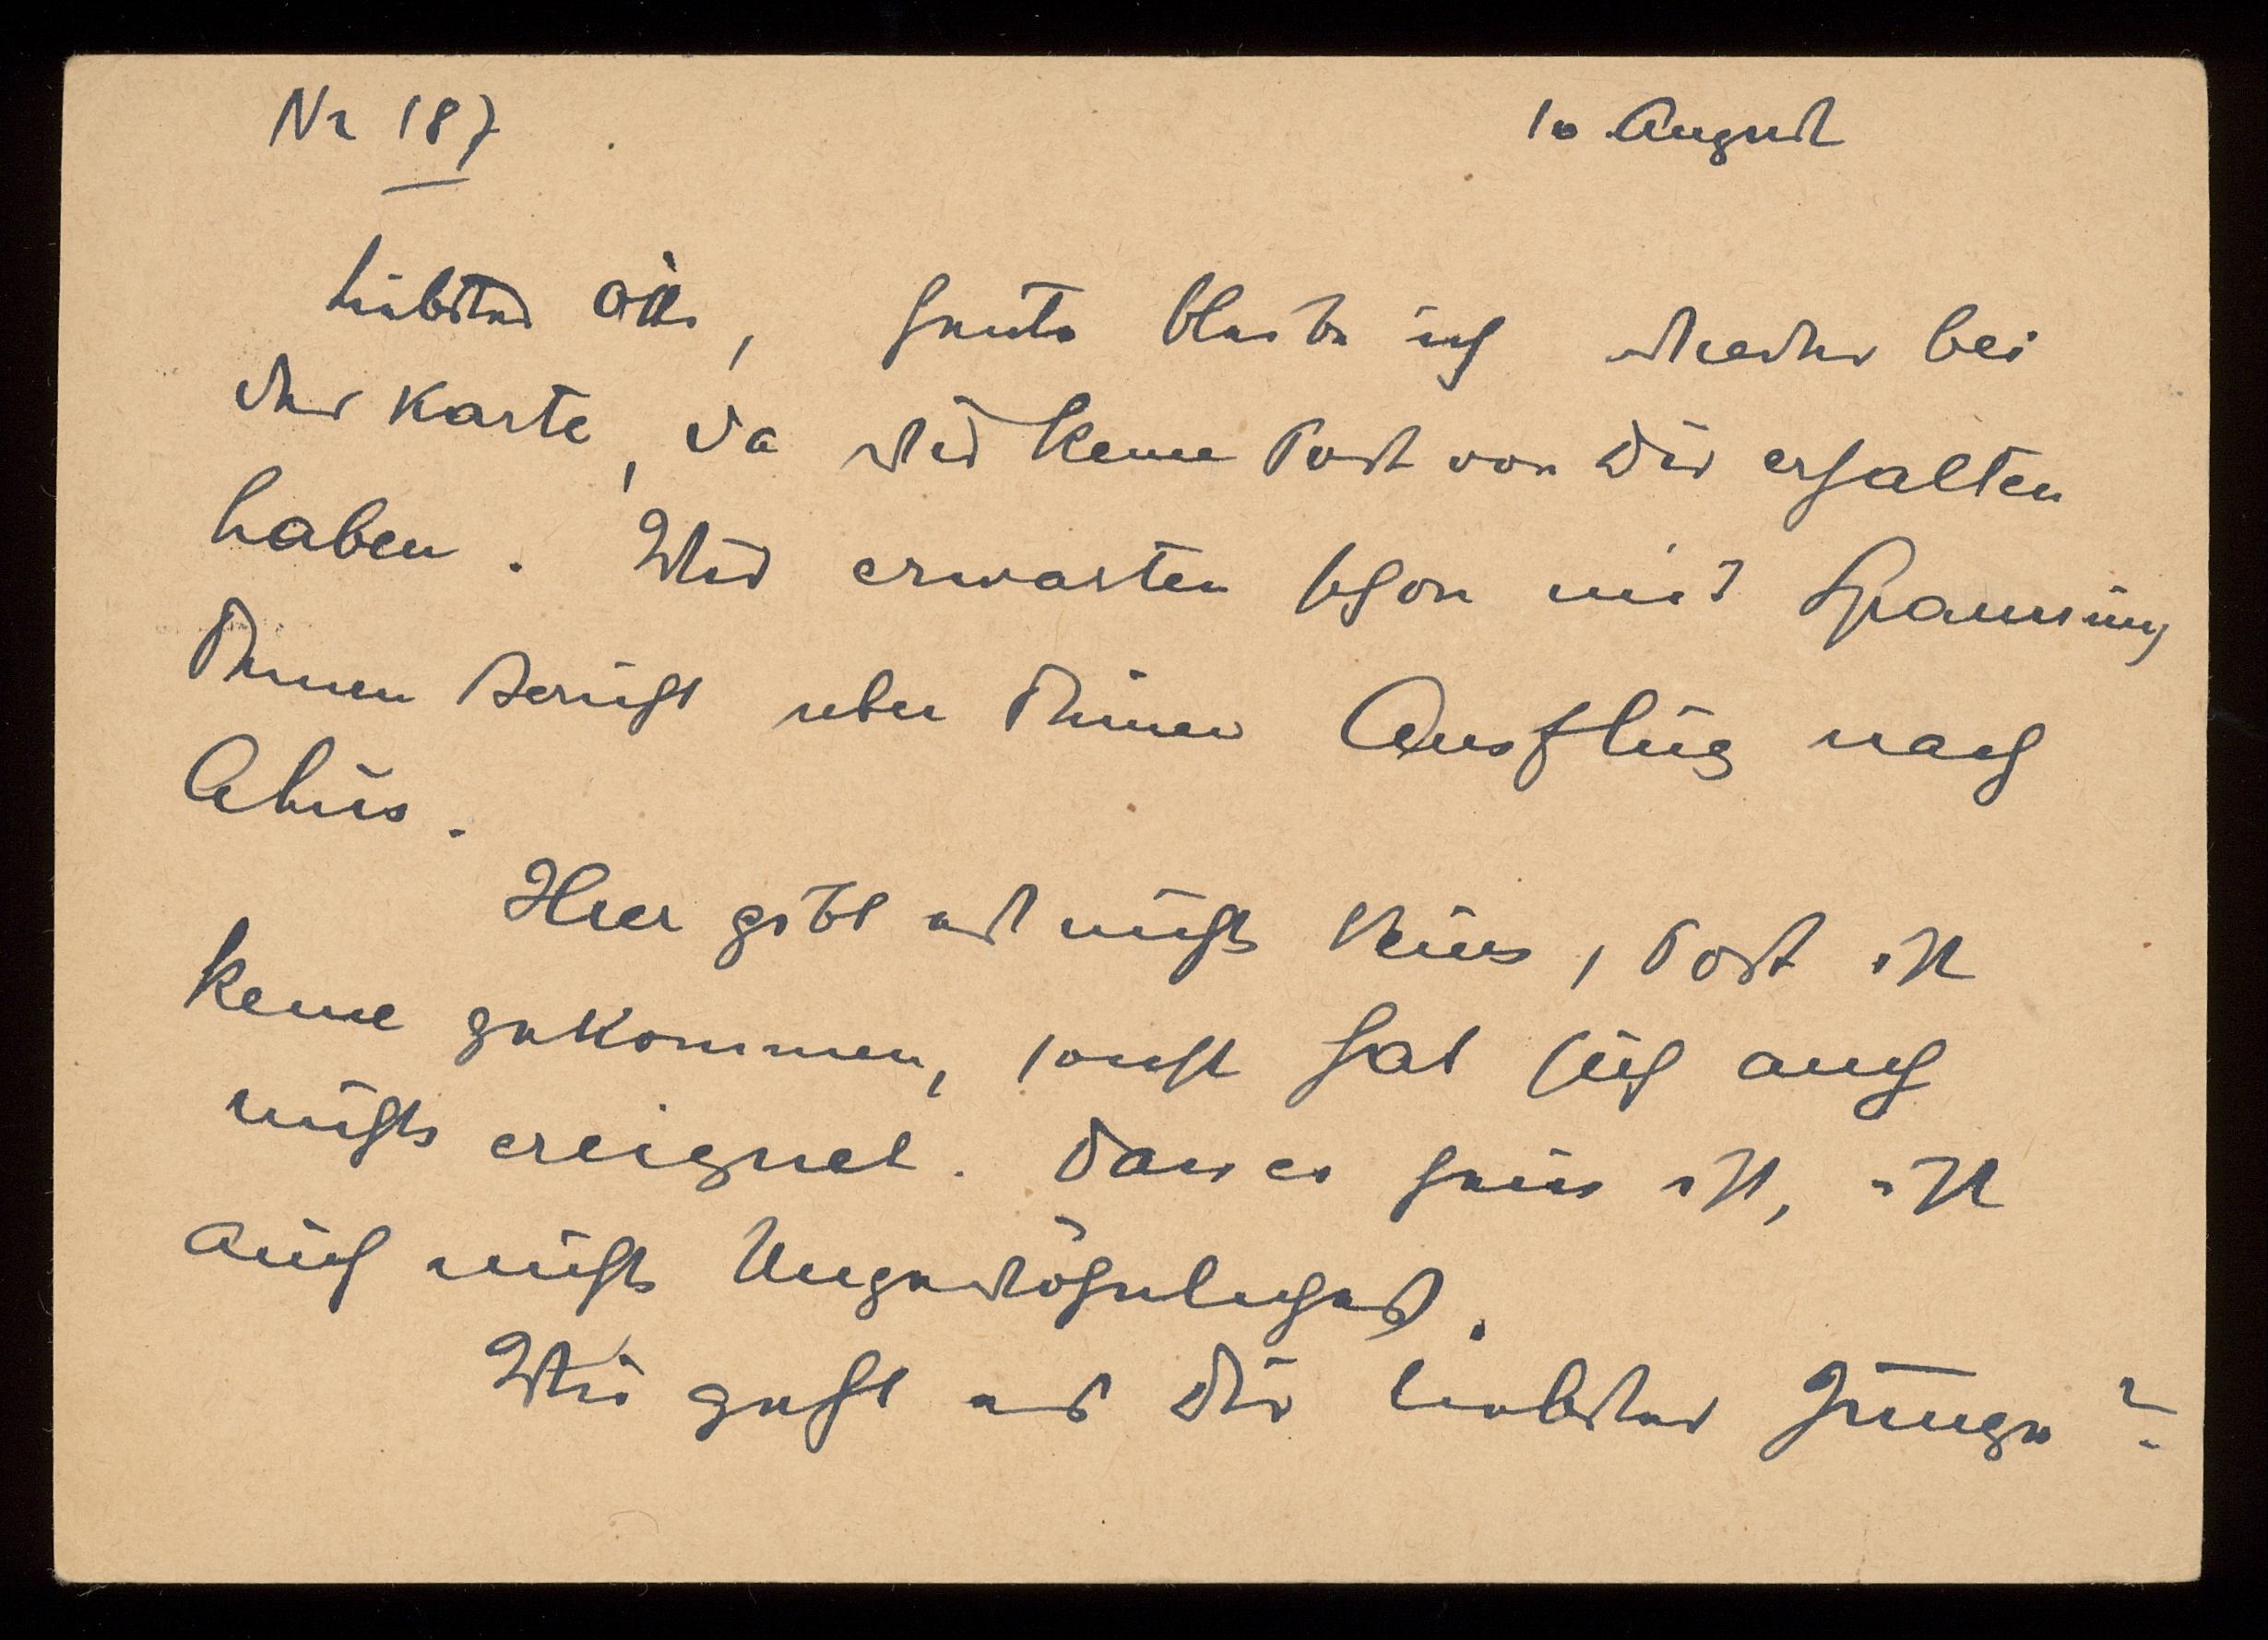 Nr 187
10 August
Liebster Otto, heute bleibe ich wieder bei
der Karte, da wir keine Post von Dir erhalten
haben. Wir erwarten schon mit Spannung
Deinen Bericht über Deinen Ausflug nach
Ahus.
Hier gibt es nichts Neues, Post ist
keine gekommen, sonst hat sich auch
nichts ereignet. Dass es heiss ist, ist
auch nichts Ungewöhnliches.
Wie geht es Dir liebster Junge?